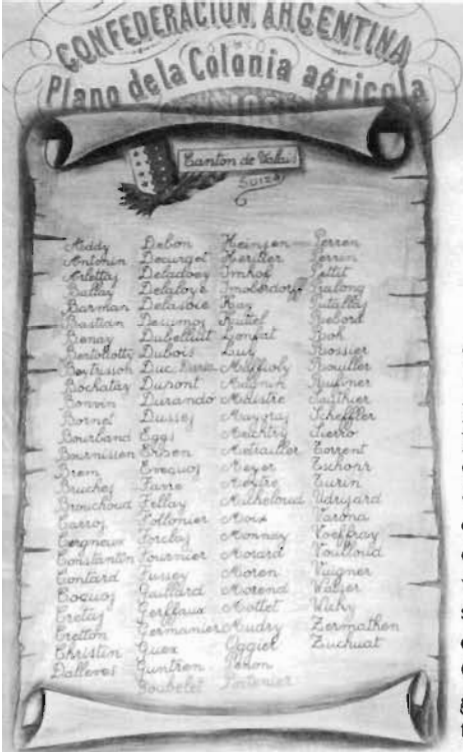 CONFEDERACION ARGENTINA
Plano de la Colonia agricola
Canton de Valais
Suiza
Addy
Antonin
Arlettaj
Ballay
Barman
Bastian
Benay
Bertolotty
Beytrisoh
Bochatay
Bonvin
Bornet
Bourband
Bournissen
Brem
Bruchej
Brouchoud
Carroj
Cergneux
Constantin
Contard
Coquoj
Cretaj
Cretton
Christin
Dalleves
Debon
Decurget
Deladoey
Delaloye
Delasoie
Desumoj
Dubelluit
Dubois
Duc
Dunont
Durando
Dussej
Eggs
Evequoj
Favre
Fellay
Follonier
Forclaj
Fournier
Fussey
Gaillard
Gerffaux
Germanier
Guex
Guntren
Goubelet
Heinsen
Heriller
Imhof
Imoberdorff
Kay
Lonfat
Luy
Maffioly
Magnin
Maistre
Mayoraj
Meichtry
Metrailler
Meyer
Meytre
Micheloud
Moix
Monnay
Morard
Moren
Morend
Mottet
Mudry
Oggier
Penon
Pertenier
Perren
Perrin
Pettit
Pralong
Putallaj
Rebord
Roh
Rossier
Rouiller
Ruffiner
Sauthier
Scheffler
Sierro
Torrent
Tschopp
Turin
Udrijard
Varona
Voeffray
Voulloud
Vuigner
Walzer
Wicky
Zermathen
Zuchuat